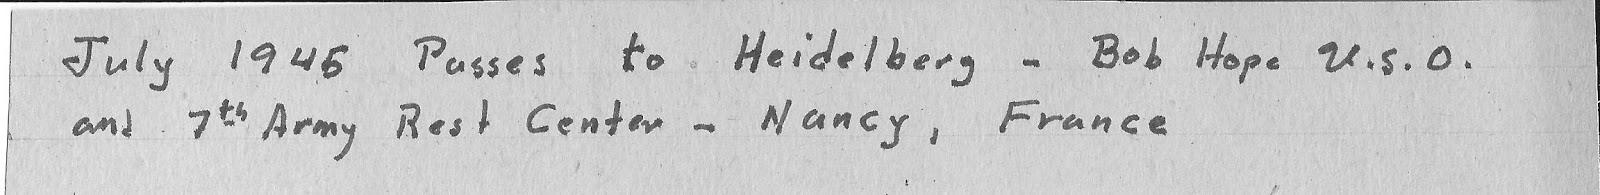 July 1945 Passes to Heidelberg - Bob Hope U.S.O.
and 7th Army Rest Center - Nancy, France